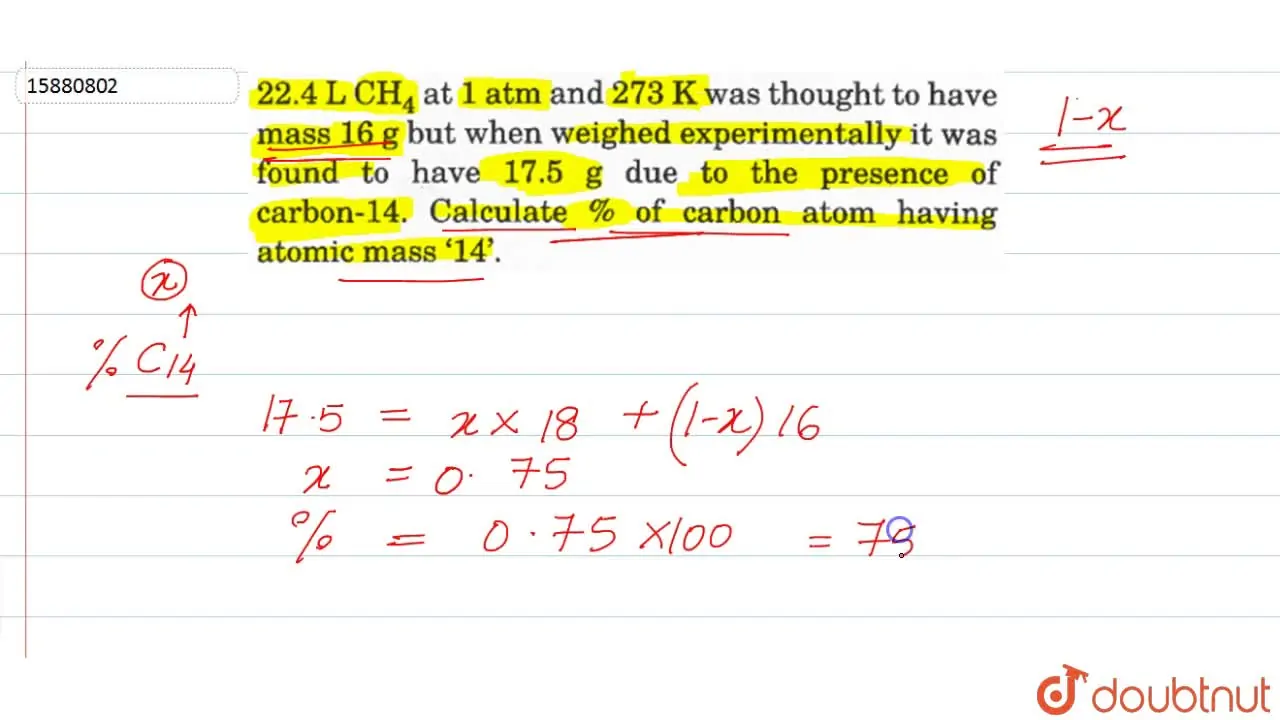 15880802
22.4 L CH₄ at 1 atm and 273 K was thought to have
mass 16 g but when weighed experimentally it was
found to have 17.5 g due to the presence of
carbon-14. Calculate % of carbon atom having
atomic mass ‘14’.
1-x
x
% C14
17.5 = x × 18 + (1-x) 16
x = 0.75
% = 0.75 × 100 = 75
doubtnut